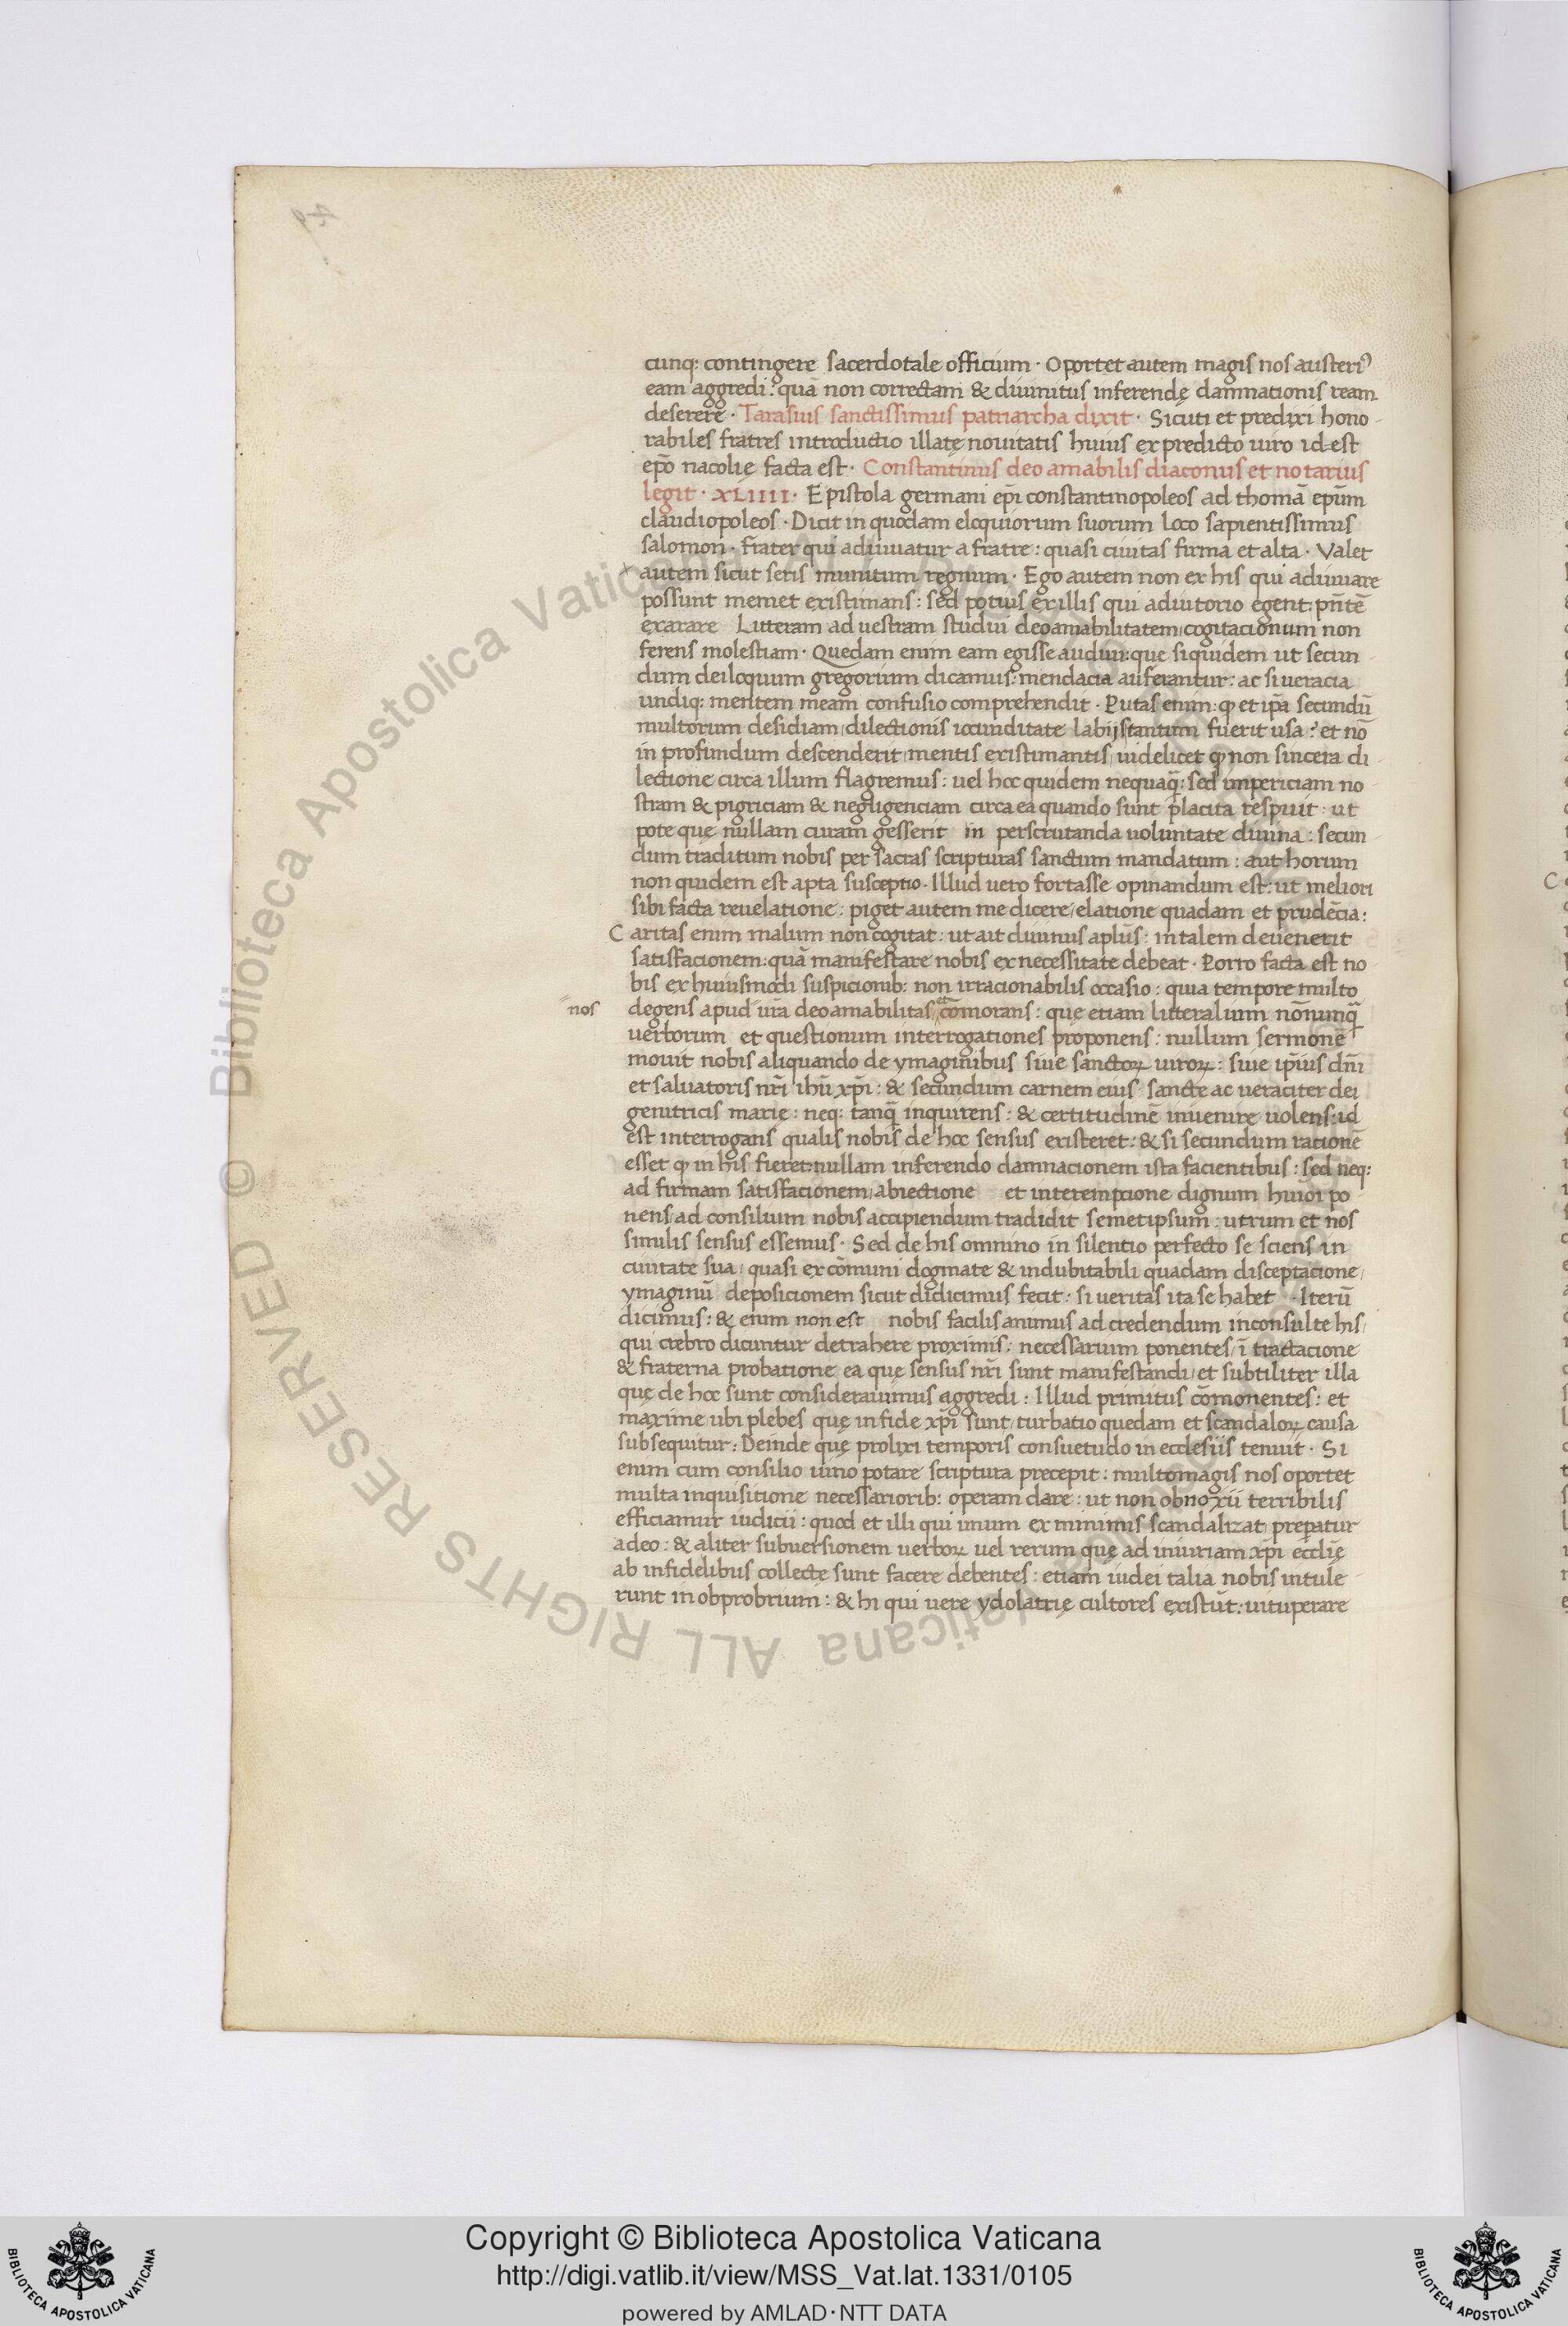 cunq: contingere sacerdotale officium · Oportet autem magis nos austeri᾽
eam aggredi: quā non correctam & diuinitus inferendę damnationis ream
deserere · Tarasius sanctissimus patriarcha dixit · Sicuti et predixi hono
rabiles fratres introductio illatę nouitatis huius ex predicto uiro id est
ep̄o nacolię facta est · Constantinus deo amabilis diaconus et notarius
legit · XLIIII · Epistola germani ep̄i constantinopoleos ad thomā ep̄um
claudiopoleos · Dicit in quodam eloquiorum suorum loco sapientissimus
salomon · frater qui adiuuatur a fratre: quasi ciuitas firma et alta · Valet
autem sicut seris munitum regnum · Ego autem non ex his qui adiuuare
possunt memet existimans: sed potius ex illis qui adiutorio egent: pn̄tē
exarare Litteram ad uestram studui deoamabilitatem, cogitacionum non
ferens molestiam · Quedam enim eam egisse audiui: que siquidem ut secun
dum deiloquum gregorium dicamus: mendacia auferantur: ac si ueracia
undiq: mentem meam confusio comprehendit · Putas enim: ꝙ et ip̄a secundū
multorum desidiam, dilectionis iocunditate labijs tantum fuerit usa? et nō
in profundum descenderit, mentis existimantis, uidelicet ꝙ non sincera di
lectione circa illum flagremus: uel hoc quidem nequaq̄: sed impericiam no
stram & pigriciam & negligenciam circa ea quando sunt placita respuit: ut
pote quę nullam curam gesserit in perscrutanda uoluntate diuina: secun
dum traditum nobis per sacras scripturas sanctum mandatum: aut horum
non quidem est apta susceptio · Illud uero fortasse opinandum est: ut meliori
sibi facta reuelatione: piget autem me dicere, elatione quadam et prudēcia:
Caritas enim malum non cogitat: ut ait diuinus apl̄us: in talem deuenerit
satisfacionem: quā manifestare nobis ex necessitate debeat · Porro facta est no
bis ex huiusmodi suspicionib: non irracionabilis occasio: quia tempore multo
nos degens apud ur̄a deoamabilitas et cōmorans: quę etiam litteralium nōnunq̄
uerborum et questionum interrogationes proponens: nullum sermonē
mouit nobis aliquando de ymaginibus siue sanctoꝝ uiroꝝ: siue ip̄ius dn̄i
et saluatoris nr̄i ihū xp̄i: & secundum carnem eius sancte ac ueraciter dei
genitricis marię: neq: tanq̄ inquirens: & certitudinē inuenire uolens: id
est interrogans qualis nobis de hoc sensus existeret: & si secundum rationē
esset ꝙ in his fieret: nullam inferendo damnacionem ista facientibus: sed neq:
ad firmam satisfacionem, abiectione et interempcione dignum huioi po
nens, ad consilium nobis accipiendum tradidit semetipsum: utrum et nos
similis sensus essemus · Sed de his omnino in silentio perfecto se sciens in
ciuitate sua, quasi ex cōmuni dogmate & indubitabili quadam disceptacione,
ymaginū deposicionem sicut didicimus fecit: si ueritas ita se habet · Iterū
dicimus: & enim non est nobis facilis animus ad credendum inconsulte his,
qui crebro dicuntur detrahere proximis: necessarium ponentes, ī tractacione
& fraterna probatione ea quę sensus nr̄i sunt manifestandi, et subtiliter illa
quę de hoc sunt considerauimus aggredi: Illud primitus cōmonentes: et
maxime, ubi plebes quę in fide xp̄i sunt, turbatio quedam et scandaloꝝ causa
subsequitur: Deinde quę prolixi temporis consuetudo in ecclesiis tenuit · Si
enim cum consilio uino potare scriptura precepit: multomagis nos oportet
multa inquisitione necessariorib: operam dare: ut non obnoxii terribilis
efficiamur iudicii: quod et illi qui unum ex minimis scandalizat prepatur
a deo: & aliter subuersionem uerboꝝ uel rerum quę ad iniuriam xp̄i eccl̄ię
ab infidelibus collecte sunt facere debentes: etiam iudei talia nobis intule
runt in obprobrium: & hi qui uere ydolatrię cultores existūt: uituperare
© Biblioteca Apostolica Vaticana ALL RIGHTS RESERVED
Copyright © Biblioteca Apostolica Vaticana
http://digi.vatlib.it/view/MSS_Vat.lat.1331/0105
powered by AMLAD·NTT DATA
BIBLIOTECA APOSTOLICA VATICANA
BIBLIOTECA APOSTOLICA VATICANA